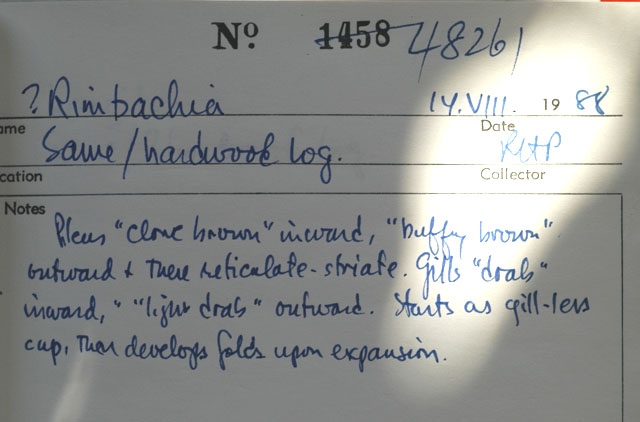 Nº 1458 48261
? Rimbachia 14.VIII. 19 88
ame Date
Same/hardwood log. RHP
cation Collector
Notes
Pileus "clove brown" inward, "buffy brown"
outward & there reticulate-striate. Gills "drab"
inward, " "light drab" outward. Starts as gill-less
cup, then develops folds upon expansion.